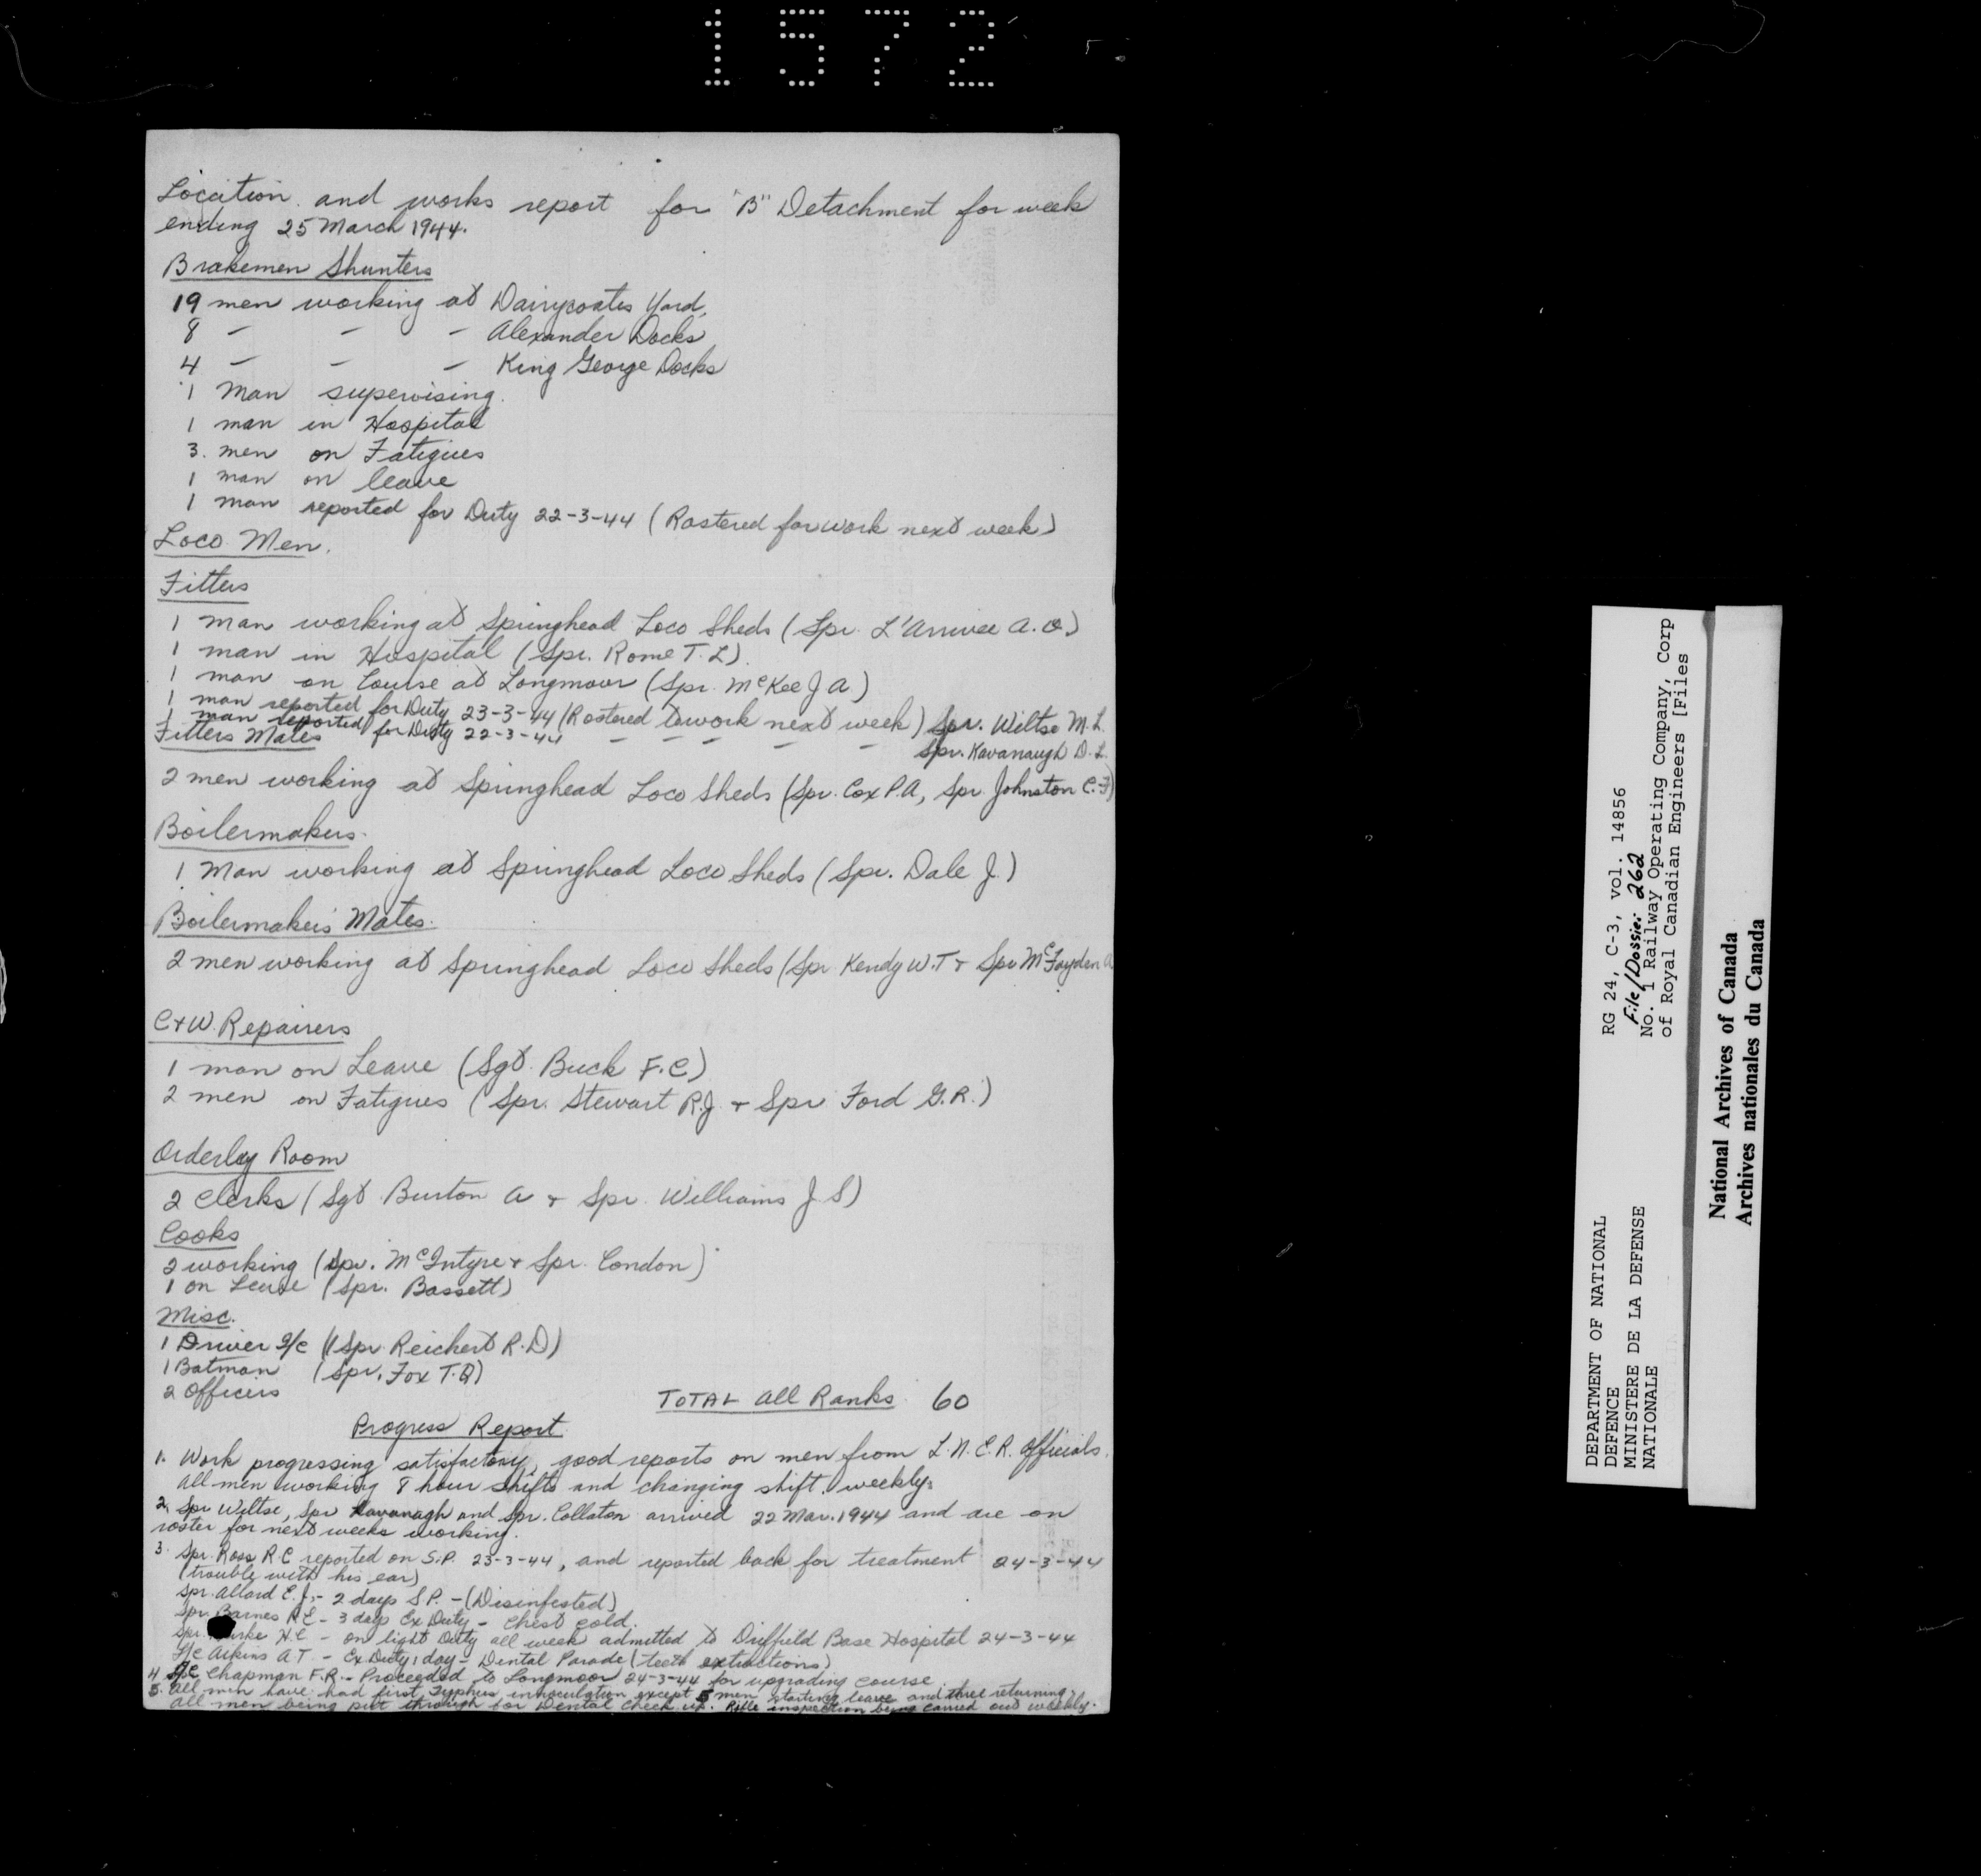 1572
Location and works report for "B" Detachment for week
ending 25 March 1944.
Brakemen Shunters
19 men working at Dairycoates Yard,
8 - - - Alexander Docks
4 - - - King George Docks
1 man supervising.
1 man in Hospital
3. men on Fatigues
1 man on leave
1 man reported for Duty 22-3-44 (Rostered for work next week)
Loco Men.
Fitters
1 man working at Springhead Loco Sheds (Spr. L'Arrivee A.O.)
1 man in Hospital (Spr. Rome T.L).
1 man on Course at Longmoor (Spr. McKee J A)
1 man reported for Duty 23-3-44 (Rostered to work next week) Spr. Wiltse M.L.
1 man reported for Duty 22-3-44 - - - - - Spr. Kavanaugh D.L.
Fitters Mates
2 men working at Springhead Loco Sheds (Spr. Cox P.A, Spr. Johnston C.F)
Boilermakers.
1 Man working at Springhead Loco Sheds (Spr. Dale J.)
Boilermakers Mates.
2 men working at Springhead Loco Sheds (Spr Kendy W.T + Spr McFayden A
C+W. Repairers
1 man on Leave (Sgt. Buck F.C)
2 men on Fatigues (Spr. Stewart R.J + Spr Ford G.R.)
Orderley Room
2 Clerks (Sgt. Burton A + Spr. Williams J S)
Cooks
2 working (Spr. McIntyre + Spr. Condon)
1 on Leave (Spr. Bassett)
Misc.
1 Driver I/C (Spr Reichert R.D)
1 Batman (Spr. Fox T.Q)
2 Officers
TOTAL All Ranks 60
Progress Report.
1. Work progressing satisfactory, good reports on men from L.N.E.R. Officials.
All men working 8 hour shifts and changing shift. weekly.
2. Spr Wiltse, Spr Kavanagh and Spr. Collaton arrived 22 Mar. 1944 and are on
roster for next weeks working.
3. Spr. Ross R.C reported on S.P. 23-3-44, and reported back for treatment 24-3-44
(trouble with his ear)
Spr. Allard E.J. - 2 days S.P. - (Disinfested)
Spr. Barnes R.E - 3 days Ex Duty - Chest cold.
Spr. H.C - on light Duty all week admitted to Driffield Base Hospital 24-3-44
L/c Aikins A T. - Ex Duty 1 day - Dental Parade (teeth extractions)
4 Chapman F.R. - Proceeded to Longmoor 24-3-44 for upgrading course.
5. All men have had first Typhus innoculation except 5 men starting leave and three returning.
All men being put through for Dental Check up. Rifle inspection being carried out weekly.
RG 24, C-3, vol. 14856
File/Dossier: 262
No. 1 Railway Operating Company, Corp
of Royal Canadian Engineers [Files
DEPARTMENT OF NATIONAL
DEFENCE
MINISTERE DE LA DEFENSE
NATIONALE
National Archives of Canada
Archives nationales du Canada